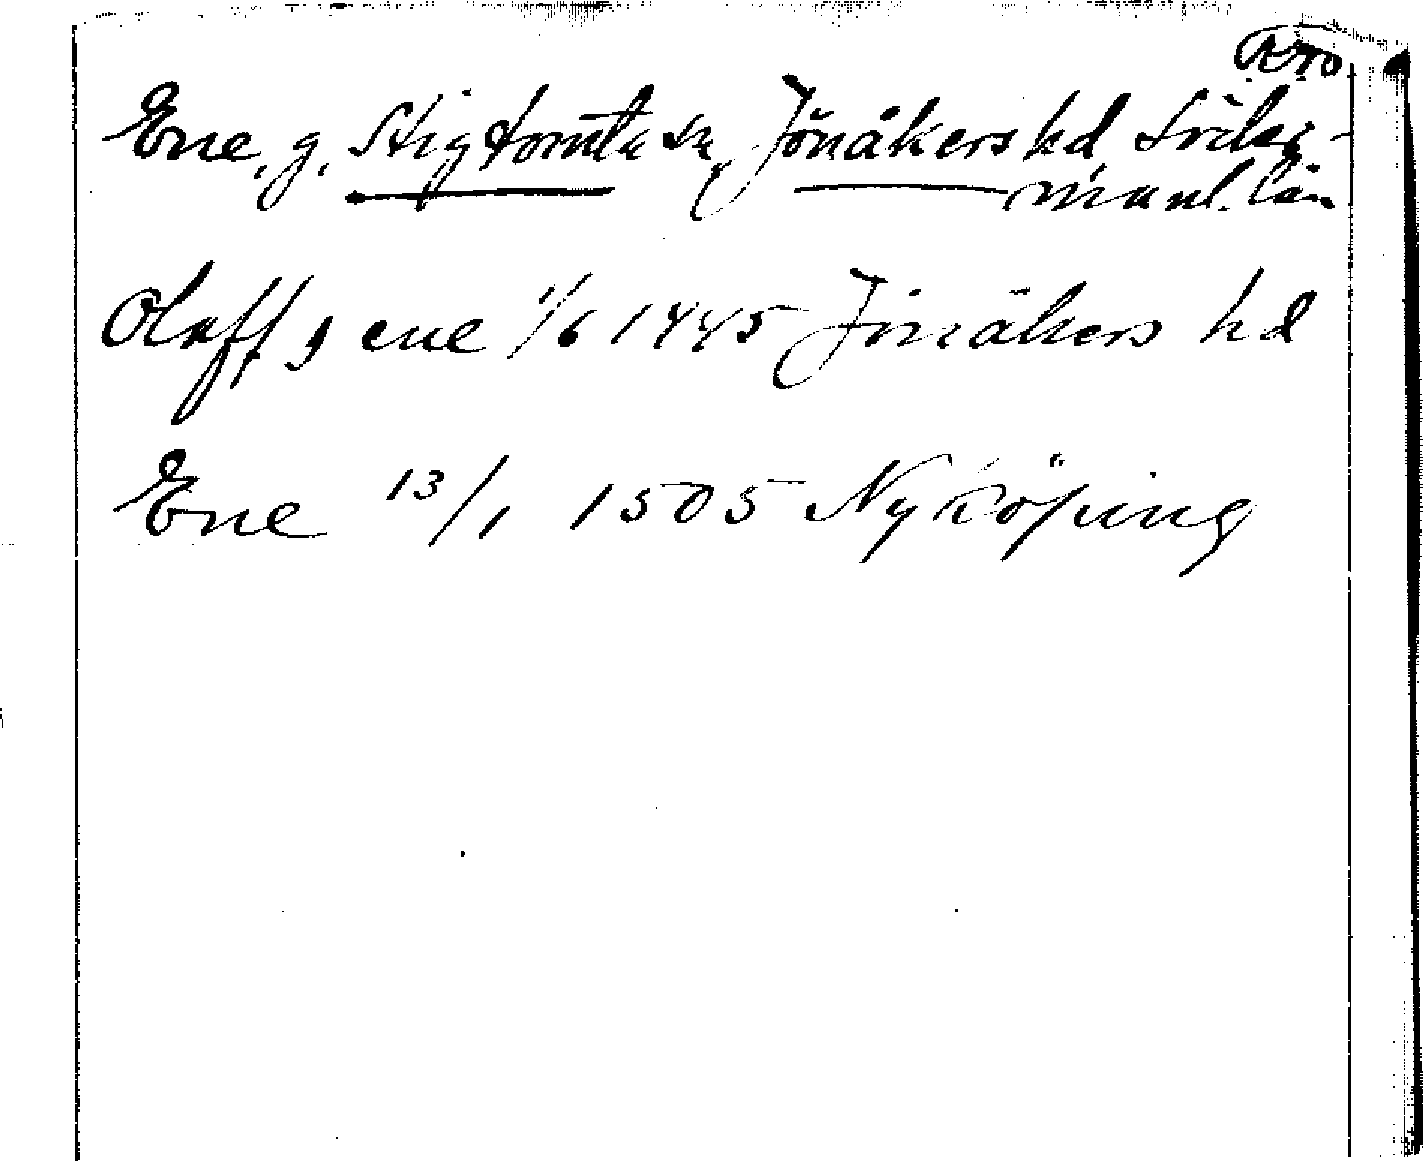 Ene, g, Stigtomta sn, Jönåkers hd, Söder-
manl. län
Olaff j ene 1/6 1445 Jönåkers hd
Ene 13/1 1505 Nyköping